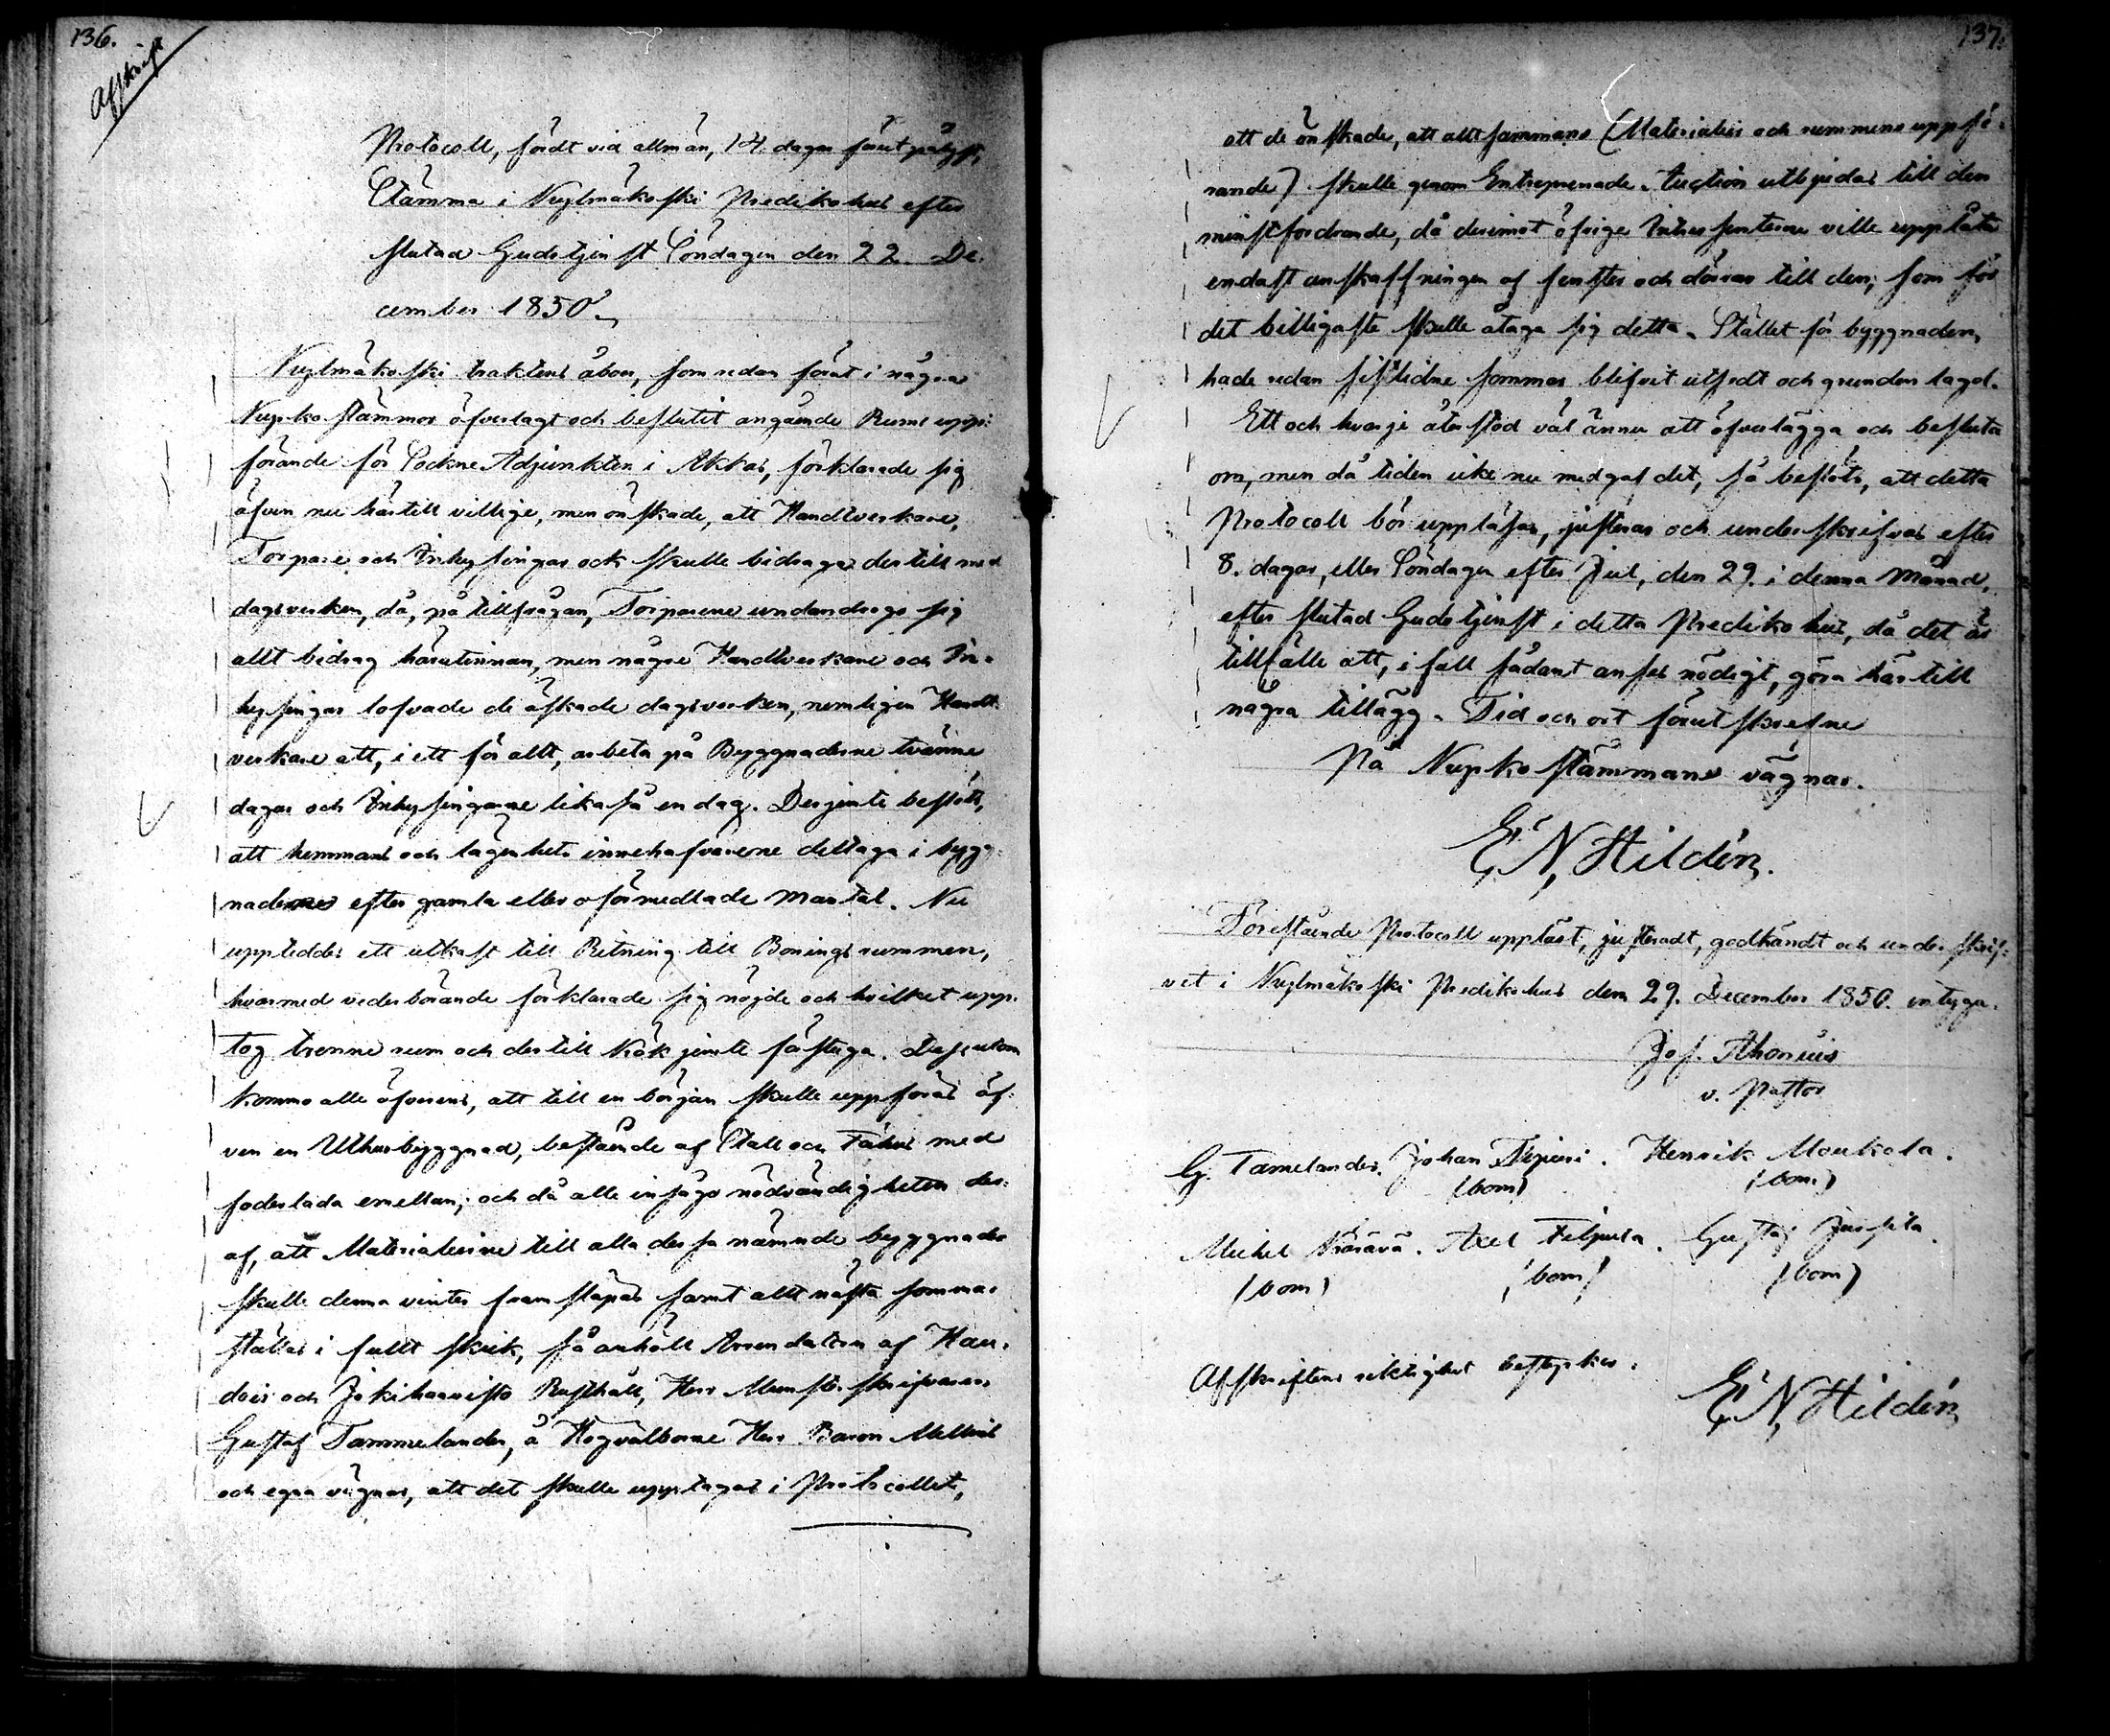 136.
Afskrift
Protocoll, fördt vid allmän, 14. dagar förut pålyst,
Stämma i Kylmäkoski Predikohus efter
slutad Gudstjenst Söndagen den 22. De-
cember 1850.
Kylmäkoski traktens åboer, som redan förut i några
Kyrkostämmor öfverlagt och beslutit angående Rums upp-
förande för Sockne Adjunkten i Akkas, förklarade sig
äfven nu härtill villige, men önskade, att Handtverkare,
Torpare och Inhysingar ock skulle bidraga dertill med
dagsverken, då, på tillfrågan, Torparene undandrogo sig
allt bidrag härutinnan, men någre Handtverkare och In-
hysingar lofvade de äskade dagsverken, nemligen Handt-
verkare att, i ett för allt, arbeta på Byggnaderne tvänne
dagar och Inhysingarne likaså en dag. Derjemte beslöts,
att hemmans och lägenhets innehafvarene deltaga i bygg-
naderne efter gamla eller oförmedlade mantal. Nu
uppteddes ett utkast till Ritning till Boningsrummen,
hvarmed vederbörande förklarade sig nöjde och hvilket upp-
tog trenne rum och dertill Kök jemte förstuga. Dessutom
kommo alle öfverens, att till en början skulle uppföras äf-
ven en Uthusbyggnad, bestående af Stall och Fähus med
foderlada emellan; och då alle insågo nödvändigheten der-
af, att Materialierne till alla dessa nämnde byggnader
skulle denna vinter framsläpas samt allt nästa sommar
ställas i fullt skick, så anhöll Arrendatorn af Hau-
dois och Jokihaavisto Rusthåll, Herr Munsterskrifvaren
Gustaf Tammelander, å Högvälborne Herr Baron Mellins
och egna vägnar, att det skulle upptagas i Protocollet,
137.
att de önskade, att alltsammans (Materialier och rummens uppfö-
rande) skulle genom Entreprenade-Auction utbjudas till den
minstfordrande, då deremot öfrige Intressenterne ville upplåta
endast anskaffningen af fenster och dörrar till den, som för
det billigaste skulle åtaga sig detta. Stället för byggnaden,
hade redan sistlidne sommar blifvit utsedt och grunden lagd.
Ett och hvarje återstod väl ännu att öfverlägga och besluta
om, men då tiden icke nu medgaf det, så beslöts, att detta
Protocoll bör uppläsas, justeras och underskrifvas efter
8. dagar, eller Söndagen efter Jul, den 29. i denna månad,
efter slutad Gudstjenst i detta Predikohus, då det är
tillfälle att, i fall sådant anses nödigt, göra härtill
några tillägg. Tid och ort förutskrefne
På Kyrkostämmans vägnar.
E. N. Hildén.
Förestående Protocoll uppläst, justeradt, godkändt och underskrif-
vet i Kylmäkoski Predikohus den 29. December 1850. intyga.
Jos.
v. Pastor
G. Tamelander. Johan . Henrik Moukola.
(bom) (bom)
Michel . Axel Filpula. Gustaf Jussila.
(bom) (bom) (bom)
Afskriftens riktighet bestyrker.
E. N. Hildén